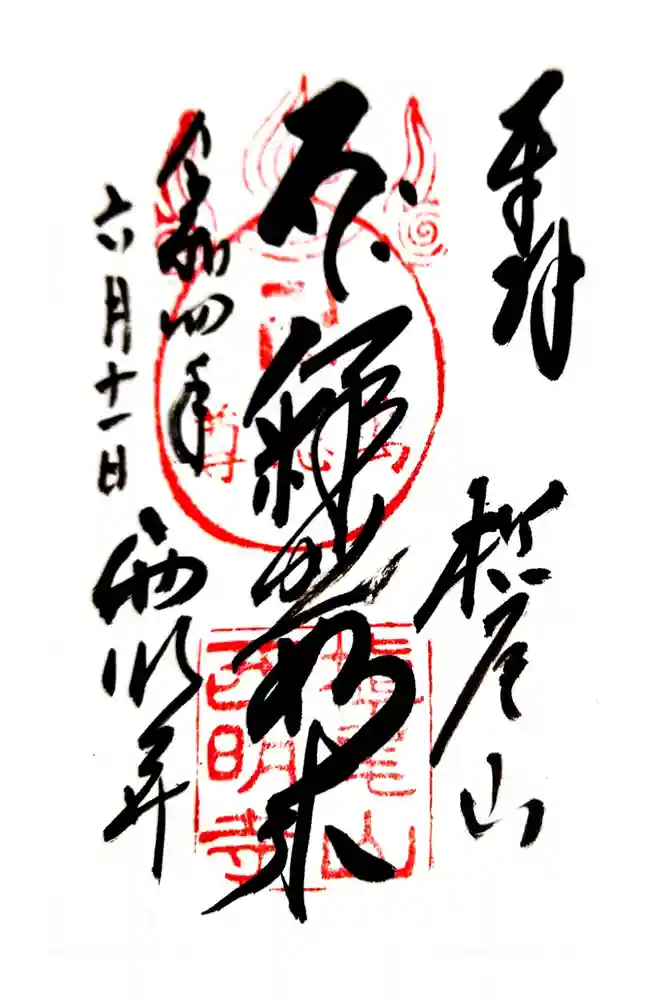 奉拝
槙尾山
釋迦如来
令和四年
六月十一日
西明寺
槙尾山
西明寺